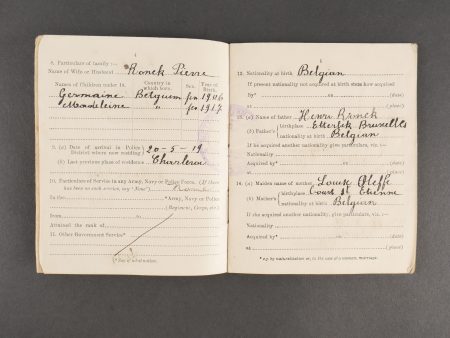 4
8. Particulars of family :—
Name of Wife or Husband Ronck Pierre
Names of Children under 16. Country in which born. Sex. Year of Birth.
Germaine Belgium fem 1906
Madeleine " fem 1917
9. (a) Date of arrival in Police District where now residing 20-5-19
(b) Last previous place of residence Charleroi
10. Particulars of Service in any Army, Navy or Police Force. (If there
has been no such service, say "None")
In the *Army, Navy or Police
(Regiment, Corps, etc.)
From to
Attained the rank of
11. Other Government Service*
5
12. Nationality at birth Belgian
If present nationality not acquired at birth state how acquired
by* on (date)
at (place)
13. (a) Name of father Henri Ronck
(b) Father's birthplace Etterbik Bruxelles
nationality at birth Belgian
If he acquired another nationality, give particulars, viz. :—
Nationality
Acquired by* on (date)
at (place)
14. (a) Maiden name of mother Louise
(b) Mother's birthplace Court St Etienne
nationality at birth Belgian
If she acquired another nationality, give particulars, viz. :—
Nationality
Acquired by* on (date)
at (place)
* e.g. by naturalization or, in the case of a woman, marriage.